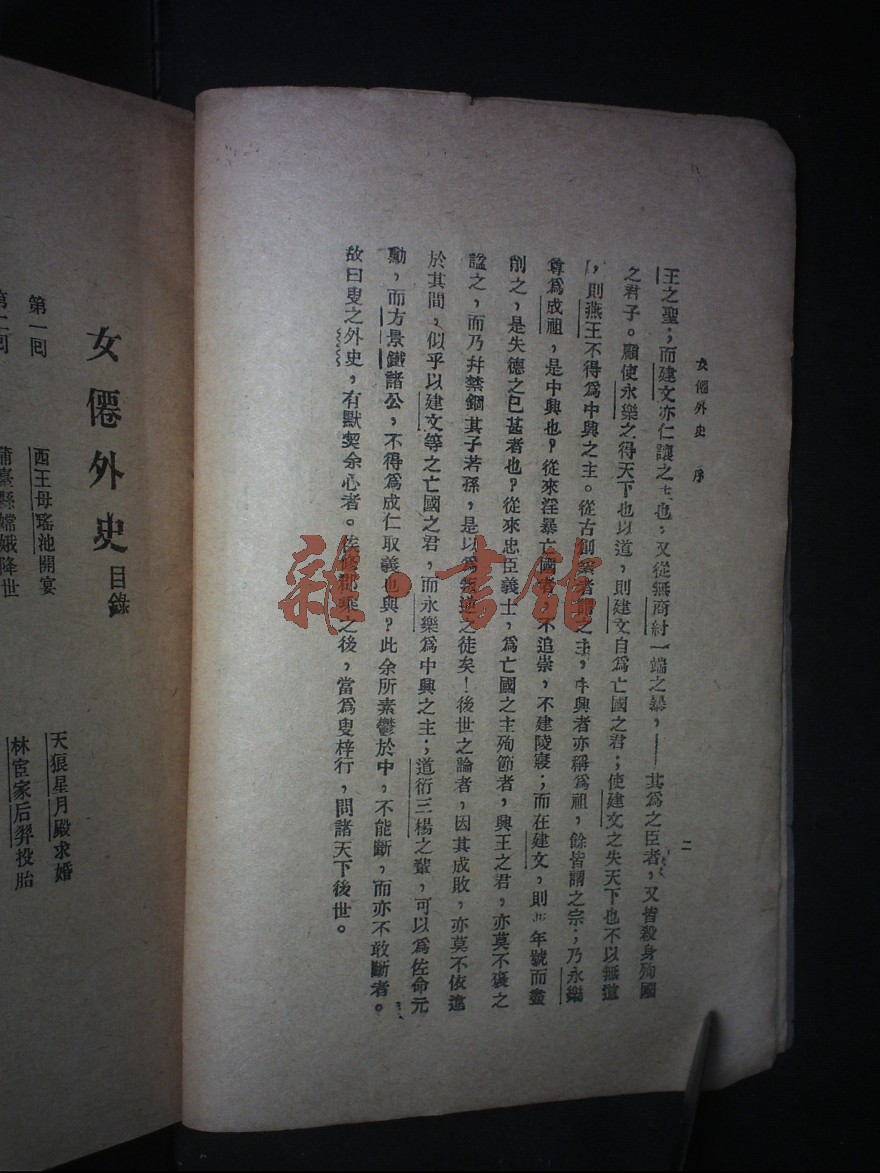 女僊外史　序
二
王之聖；而建文亦仁讓之主也；又從無商紂一端之暴，——其爲之臣者，又皆殺身殉國
之君子。顧使永樂之得天下也以道，則建文自爲亡國之君；使建文之失天下也不以無道
，則燕王不得爲中興之主。從古創業者謂之主，中興者亦稱爲祖，餘皆謂之宗；乃永樂
尊爲成祖，是中興也？從來淫暴亡國者，不追崇，不建陵寢；而在建文，則年號而盡
削之，是失德之已甚者也？從來忠臣義士，爲亡國之主殉節者，興王之君，亦莫不褒之
諡之，而乃幷禁錮其子若孫，是以爲叛逆之徒矣！後世之論者，因其成敗，亦莫不依違
於其間，似乎以建文等之亡國之君，而永樂爲中興之主；道衍三楊之輩，可以爲佐命元
勳，而方景鐵諸公，不得爲成仁取義也與？此余所素鬱於中，不能斷，而亦不敢斷者。
故曰叟之外史，有默契余心者。俟修郡乘之後，當爲叟梓行，問諸天下後世。
雜·書館
女僊外史目錄
第一回　西王母瑤池開宴　天狼星月殿求婚
第二回　蒲臺縣嫦娥降世　林宦家后羿投胎